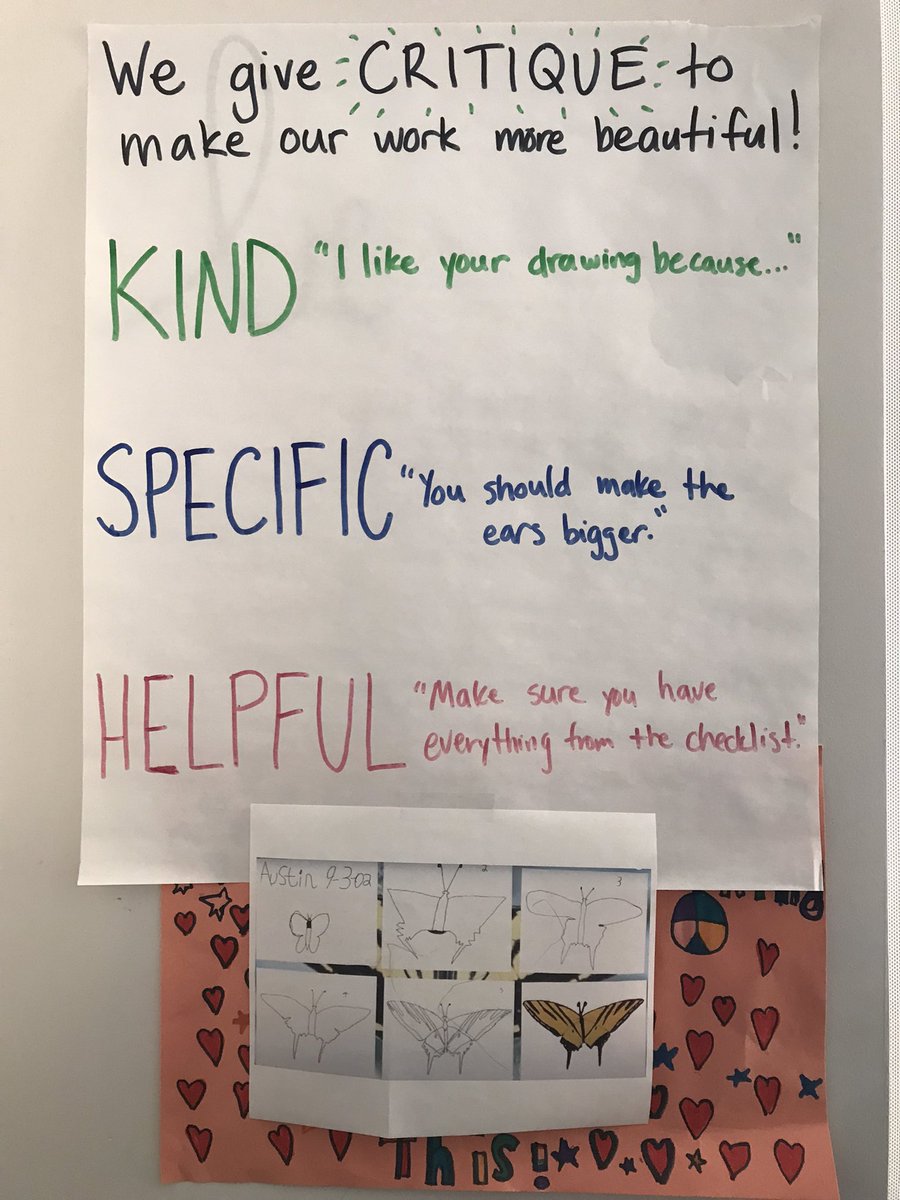 We give CRITIQUE to
make our work more beautiful!
KIND "I like your drawing because..."
SPECIFIC "You should make the
ears bigger."
HELPFUL "Make sure you have
everything from the checklist."
Austin 9-3-02
2
3
4
5
This!